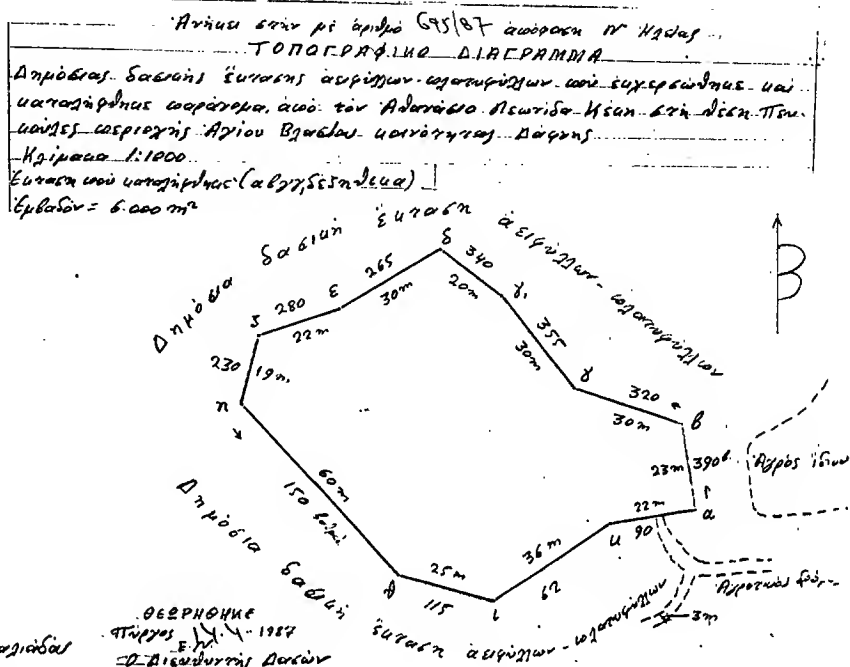 Ἀνήκει στήν μέ ἀριθμό 695/87 ἀπόφαση Ν Ἠλείας
ΤΟΠΟΓΡΑΦΙΚΟ ΔΙΑΓΡΑΜΜΑ
Δημόσιας δασικῆς ἔκτασης ἀειφύλλων-πλατυφύλλων πού ἐκχερσώθηκε καί
καταλήφθηκε παράνομα, ἀπό τόν Ἀθανάσιο Λεωνίδα Κέκη στή θέση
περιοχῆς Ἁγίου Βλασίου κοινότητας Δάφνης
Κλίμακα 1:1000
Ἔκταση πού καταλήφθηκε (αβγγ,δεζηθικα)
Ἐμβαδόν = 6.000 m²
Δημόσια δασική ἔκταση ἀειφύλλων-πλατυφύλλων
Β
δ
340
20m
γ,
265
30m
ε
280
22m
ζ
355
30m
230
19m
γ
320
30m
β
η
23m
390
Ἀγρός ἰδίου
60m
150 βαθμοί
22m
α
κ
90
36m
62
25m
115
θ
ι
Ἀγροτικός
3m
Δημόσια δασική ἔκταση ἀειφύλλων-πλατυφύλλων
ΘΕΩΡΗΘΗΚΕ
Πύργος 14-4-1987
Ὁ Διευθυντής Δασῶν